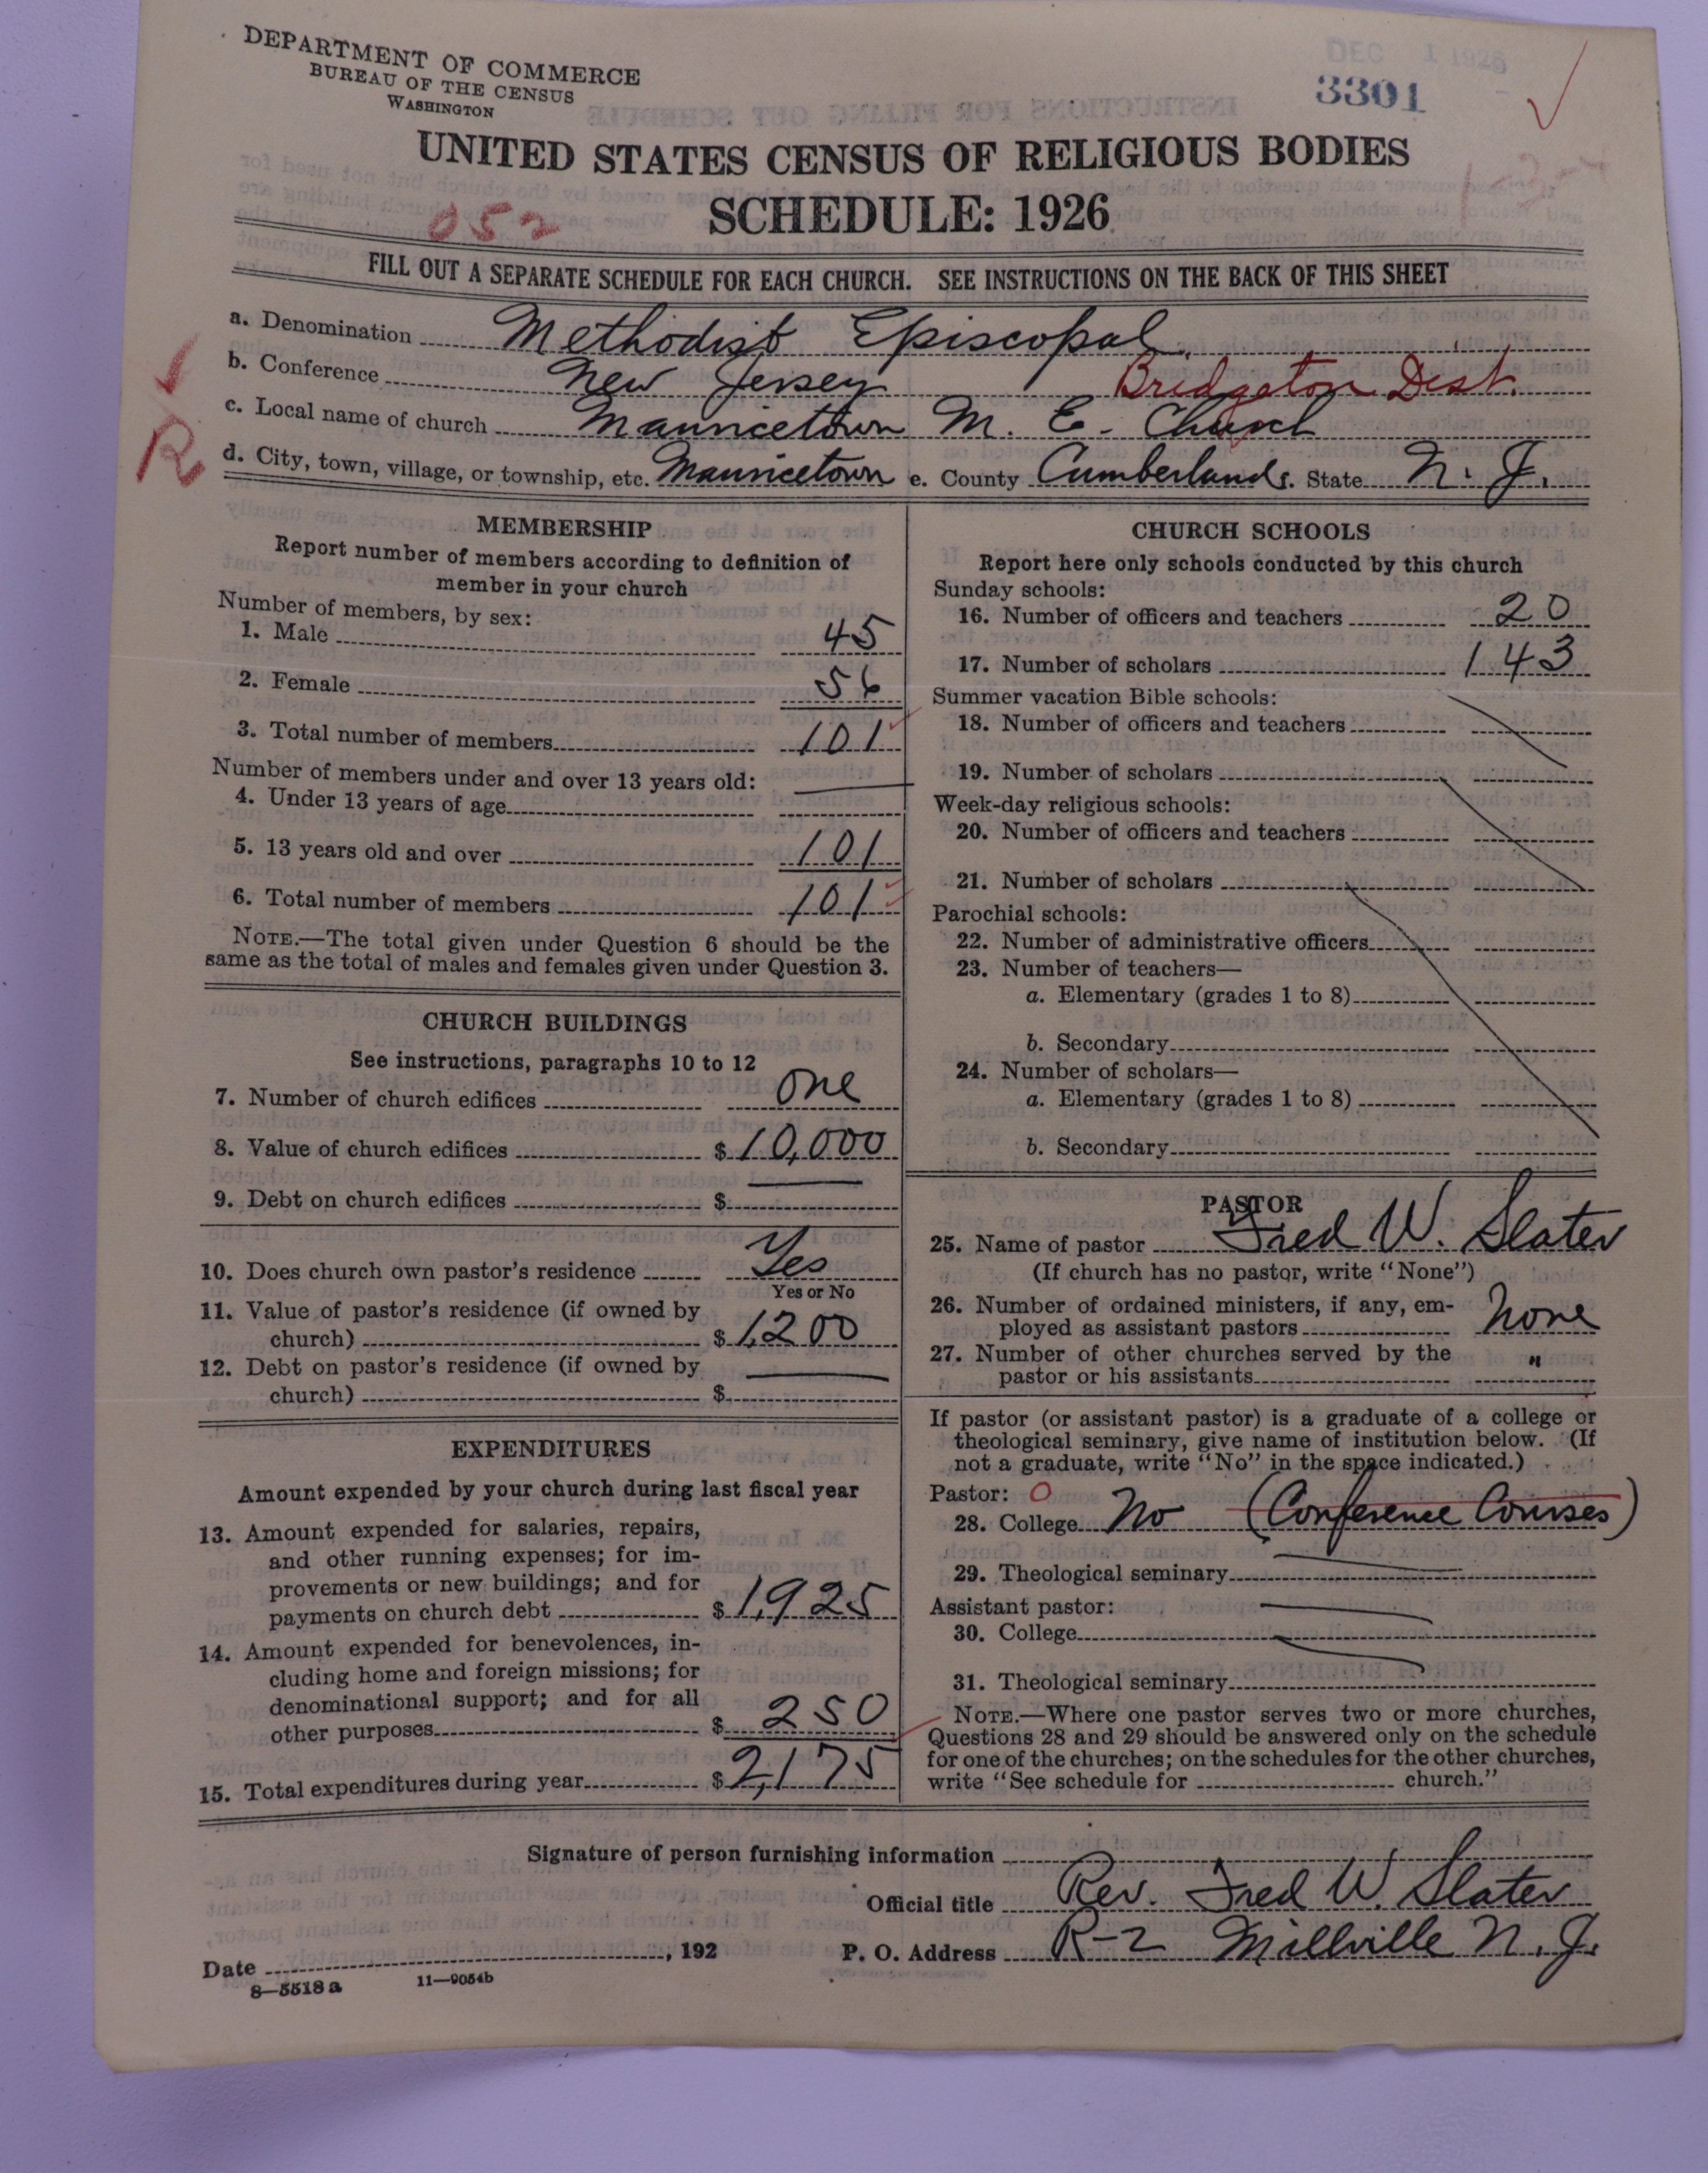 DEPARTMENT OF COMMERCE
BUREAU OF THE CENSUS
WASHINGTON
DEC 1 1926
3301
UNITED STATES CENSUS OF RELIGIOUS BODIES
SCHEDULE: 1926
052
FILL OUT A SEPARATE SCHEDULE FOR EACH CHURCH. SEE INSTRUCTIONS ON THE BACK OF THIS SHEET
a. Denomination Methodist Episcopal
b. Conference New Jersey Bridgeton Dist.
c. Local name of church Mauricetown M. E. Church
R
d. City, town, village, or township, etc. Mauricetown e. County Cumberland f. State N. J.
MEMBERSHIP
Report number of members according to definition of
member in your church
Number of members, by sex:
1. Male 45
2. Female 56
3. Total number of members 101
Number of members under and over 13 years old:
4. Under 13 years of age
5. 13 years old and over 101
6. Total number of members 101
NOTE.—The total given under Question 6 should be the
same as the total of males and females given under Question 3.
CHURCH BUILDINGS
See instructions, paragraphs 10 to 12
7. Number of church edifices one
8. Value of church edifices $ 10,000
9. Debt on church edifices $
10. Does church own pastor's residence Yes
Yes or No
11. Value of pastor's residence (if owned by
church) $ 1,200
12. Debt on pastor's residence (if owned by
church) $
EXPENDITURES
Amount expended by your church during last fiscal year
13. Amount expended for salaries, repairs,
and other running expenses; for im-
provements or new buildings; and for
payments on church debt $ 1,925
14. Amount expended for benevolences, in-
cluding home and foreign missions; for
denominational support; and for all
other purposes $ 250
15. Total expenditures during year $ 2,175
CHURCH SCHOOLS
Report here only schools conducted by this church
Sunday schools:
16. Number of officers and teachers 20
17. Number of scholars 143
Summer vacation Bible schools:
18. Number of officers and teachers
19. Number of scholars
Week-day religious schools:
20. Number of officers and teachers
21. Number of scholars
Parochial schools:
22. Number of administrative officers
23. Number of teachers—
a. Elementary (grades 1 to 8)
b. Secondary
24. Number of scholars—
a. Elementary (grades 1 to 8)
b. Secondary
PASTOR
25. Name of pastor Fred W. Slater
(If church has no pastor, write "None")
26. Number of ordained ministers, if any, em-
ployed as assistant pastors None
27. Number of other churches served by the
pastor or his assistants "
If pastor (or assistant pastor) is a graduate of a college or
theological seminary, give name of institution below. (If
not a graduate, write "No" in the space indicated.)
Pastor: O
28. College No (Conference Courses)
29. Theological seminary
Assistant pastor:
30. College
31. Theological seminary
NOTE.—Where one pastor serves two or more churches,
Questions 28 and 29 should be answered only on the schedule
for one of the churches; on the schedules for the other churches,
write "See schedule for church."
Signature of person furnishing information
Official title Rev. Fred W. Slater
Date , 192 P. O. Address R-2 Millville N. J.
8—5518 a 11—9054b